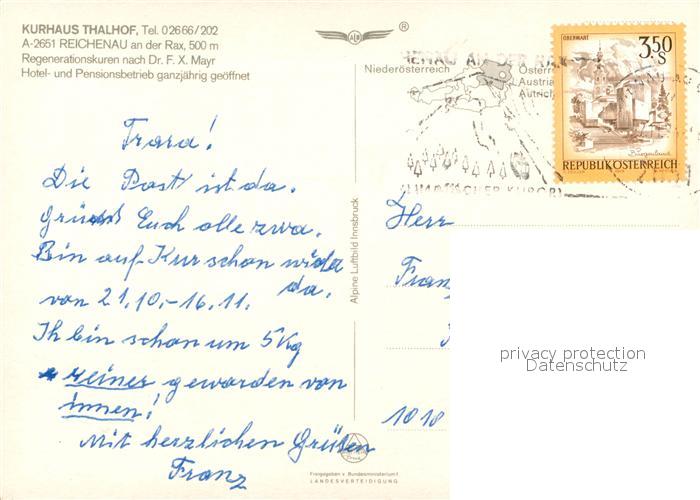 KURHAUS THALHOF, Tel. 02666/202
A-2651 REICHENAU an der Rax, 500 m
Regenerationskuren nach Dr. F. X. Mayr
Hotel- und Pensionsbetrieb ganzjährig geöffnet
®
Niederösterreich
Österre
Austria
Autrich
AN DER RAX
KURORT
OBERWART
3,50
S
Burgenland
REPUBLIK ÖSTERREICH
Alpine Luftbild Innsbruck
Die Post ist da.
Grüsst Euch alle
Bin auf Kur schon wieder da.
von 21.10.-16.11.
Ich bin schon um 5 Kg
reiner geworden von
innen!
Mit herzlichen Grüßen
Franz
Herr
Franz
1010
privacy protection
Datenschutz
Freigegeben v. Bundesministerium f.
LANDESVERTEIDIGUNG